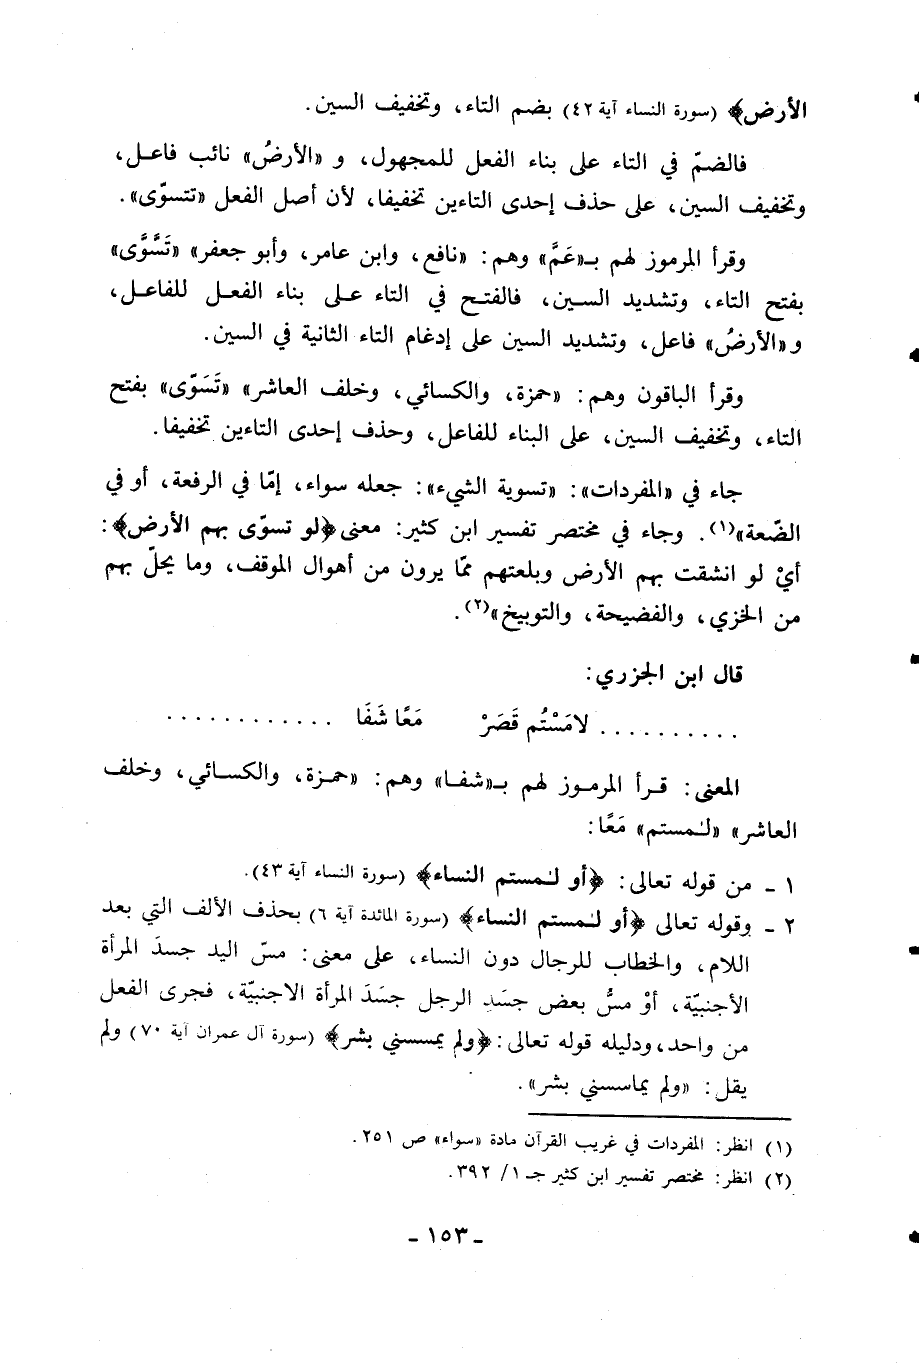 الأرض﴾ (سورة النساء آية ٤٢) بضم التاء، وتخفيف السين.
فالضمّ في التاء على بناء الفعل للمجهول، و «الأرضُ» نائب فاعل،
وتخفيف السين، على حذف إحدى التاءين تخفيفا، لأن أصل الفعل «تتسوّى».
وقرأ المرموز لهم بـ«عَمَّ» وهم: «نافع، وابن عامر، وأبو جعفر» «تَسَّوَّى»
بفتح التاء، وتشديد السين، فالفتح في التاء على بناء الفعل للفاعل،
و«الأرضُ» فاعل، وتشديد السين على إدغام التاء الثانية في السين.
وقرأ الباقون وهم: «حمزة، والكسائي، وخلف العاشر» «تَسَوّى» بفتح
التاء، وتخفيف السين، على البناء للفاعل، وحذف إحدى التاءين تخفيفا.
جاء في «المفردات»: «تسوية الشيء»: جعله سواء، إمّا في الرفعة، أو في
الضّعة»(١). وجاء في مختصر تفسير ابن كثير: معنى﴿لو تسوّى بهم الأرض﴾:
أيْ لو انشقت بهم الأرض وبلعتهم ممّا يرون من أهوال الموقف، وما يحلّ بهم
من الخزي، والفضيحة، والتوبيخ»(٢).
قال ابن الجزري:
.......... لامَسْتُم قَصَرْ مَعًا شَفَا ............
المعنى: قرأ المرموز لهم بـ«شفا» وهم: «حمزة، والكسائي، وخلف
العاشر» «لـمستم» مَعًا:
١ ـ من قوله تعالى: ﴿أو لـمستم النساء﴾ (سورة النساء آية ٤٣).
٢ ـ وقوله تعالى ﴿أو لـمستم النساء﴾ (سورة المائدة آية ٦) بحذف الألف التي بعد
اللام، والخطاب للرجال دون النساء، على معنى: مسّ اليد جسدَ المرأة
الأجنبيّة، أوْ مسُّ بعض جسَدِ الرجل جسَدَ المرأة الاجنبيّة، فجرى الفعل
من واحد، ودليله قوله تعالى: ﴿ولم يمسسني بشر﴾ (سورة آل عمران آية ٧٠) ولم
يقل: «ولم يماسسني بشر».
(١) انظر: المفردات في غريب القرآن مادة «سواء» ص ٢٥١.
(٢) انظر: مختصر تفسير ابن كثير جـ ١/ ٣٩٢.
ـ ١٥٣ ـ